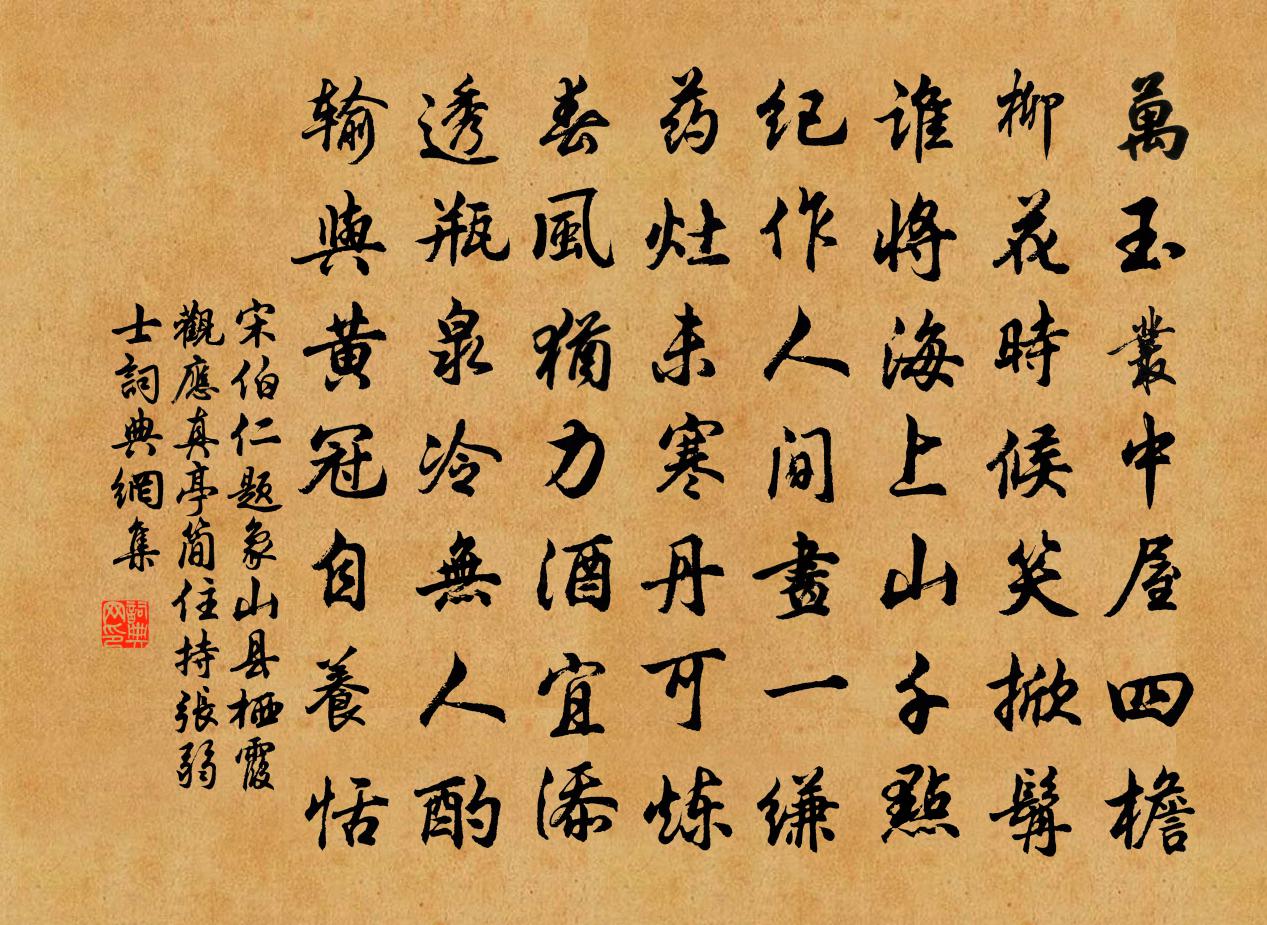 萬玉叢中屋四檐
柳花時候笑掀髯
誰將海上山千點
纪作人间畫一缣
药灶未寒丹可炼
春風猶力酒宜添
透瓶泉冷無人酌
输與黄冠自養恬
宋伯仁题象山县栖霞
觀應真亭简住持張弱
士詞典網集
詞典网印